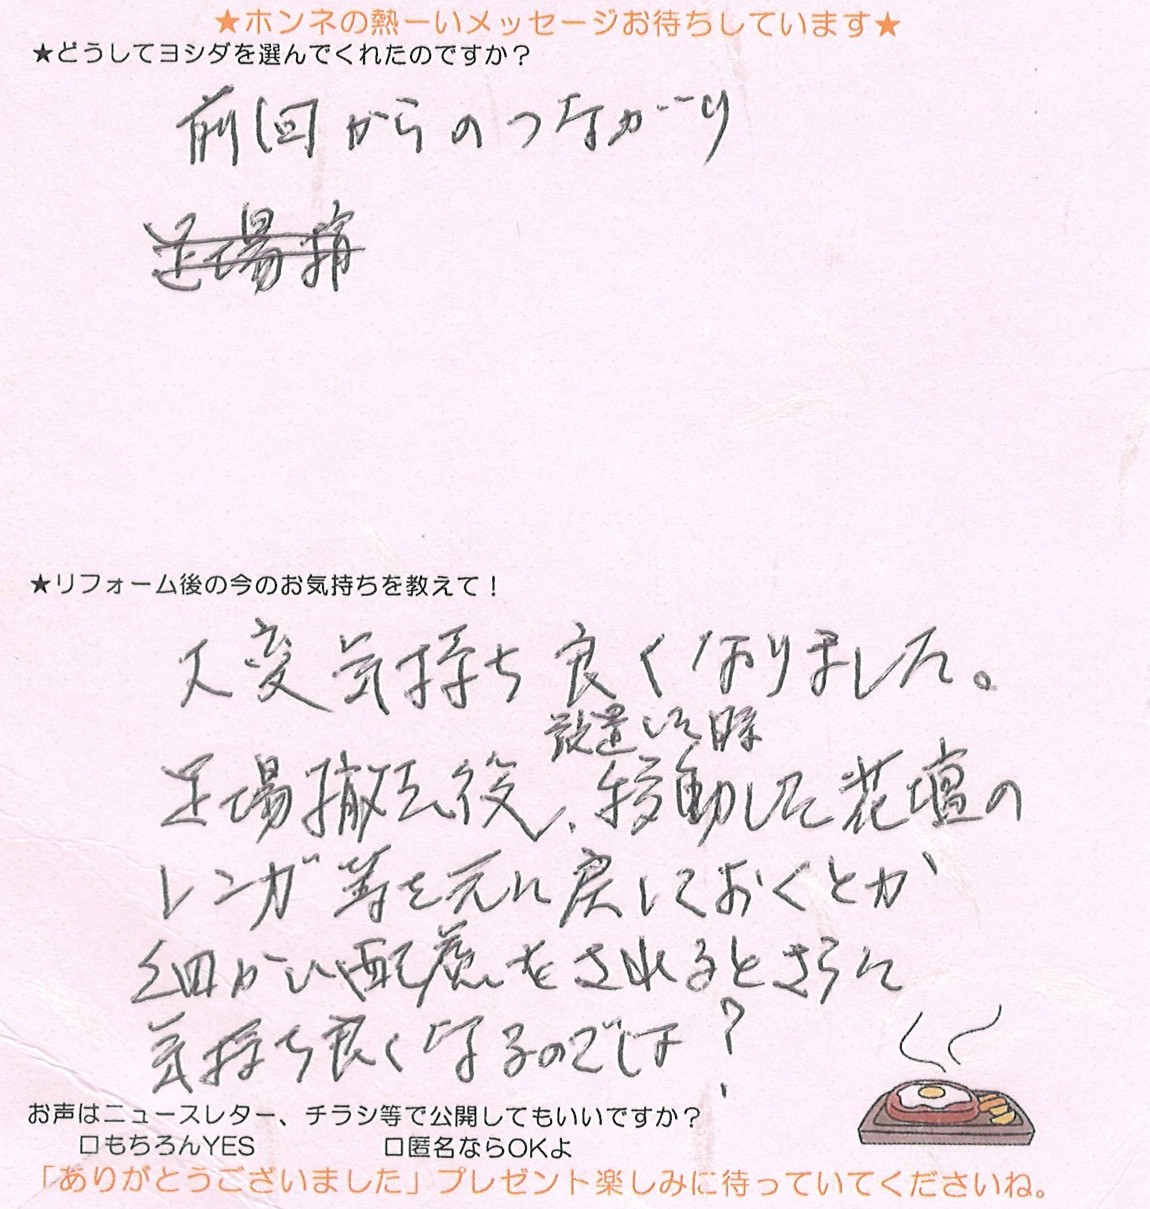 ★ホンネの熱ーいメッセージお待ちしています★
★どうしてヨシダを選んでくれたのですか？
前回からのつながり
足場
★リフォーム後の今のお気持ちを教えて！
大変気持ち良くなりました。
設置した時
足場撤去後、移動した花壇の
レンガ等を元に戻しておくとか
細かい配慮をされるとさらに
気持ち良くなるのでは？
お声はニュースレター、チラシ等で公開してもいいですか？
□もちろんYES □匿名ならOKよ
「ありがとうございました」プレゼント楽しみに待っていてくださいね。